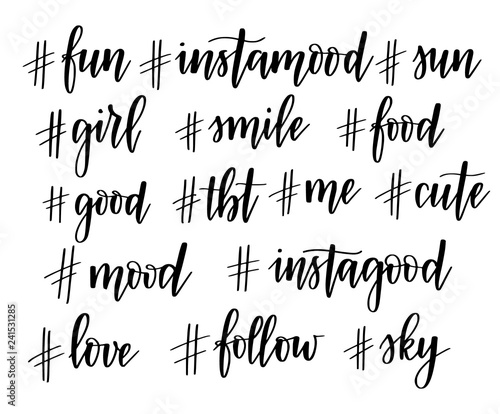 #fun #instamood #sun
#girl #smile #food
#good #tbt #me #cute
#mood #instagood
#love #follow #sky
Adobe Stock | #241531285